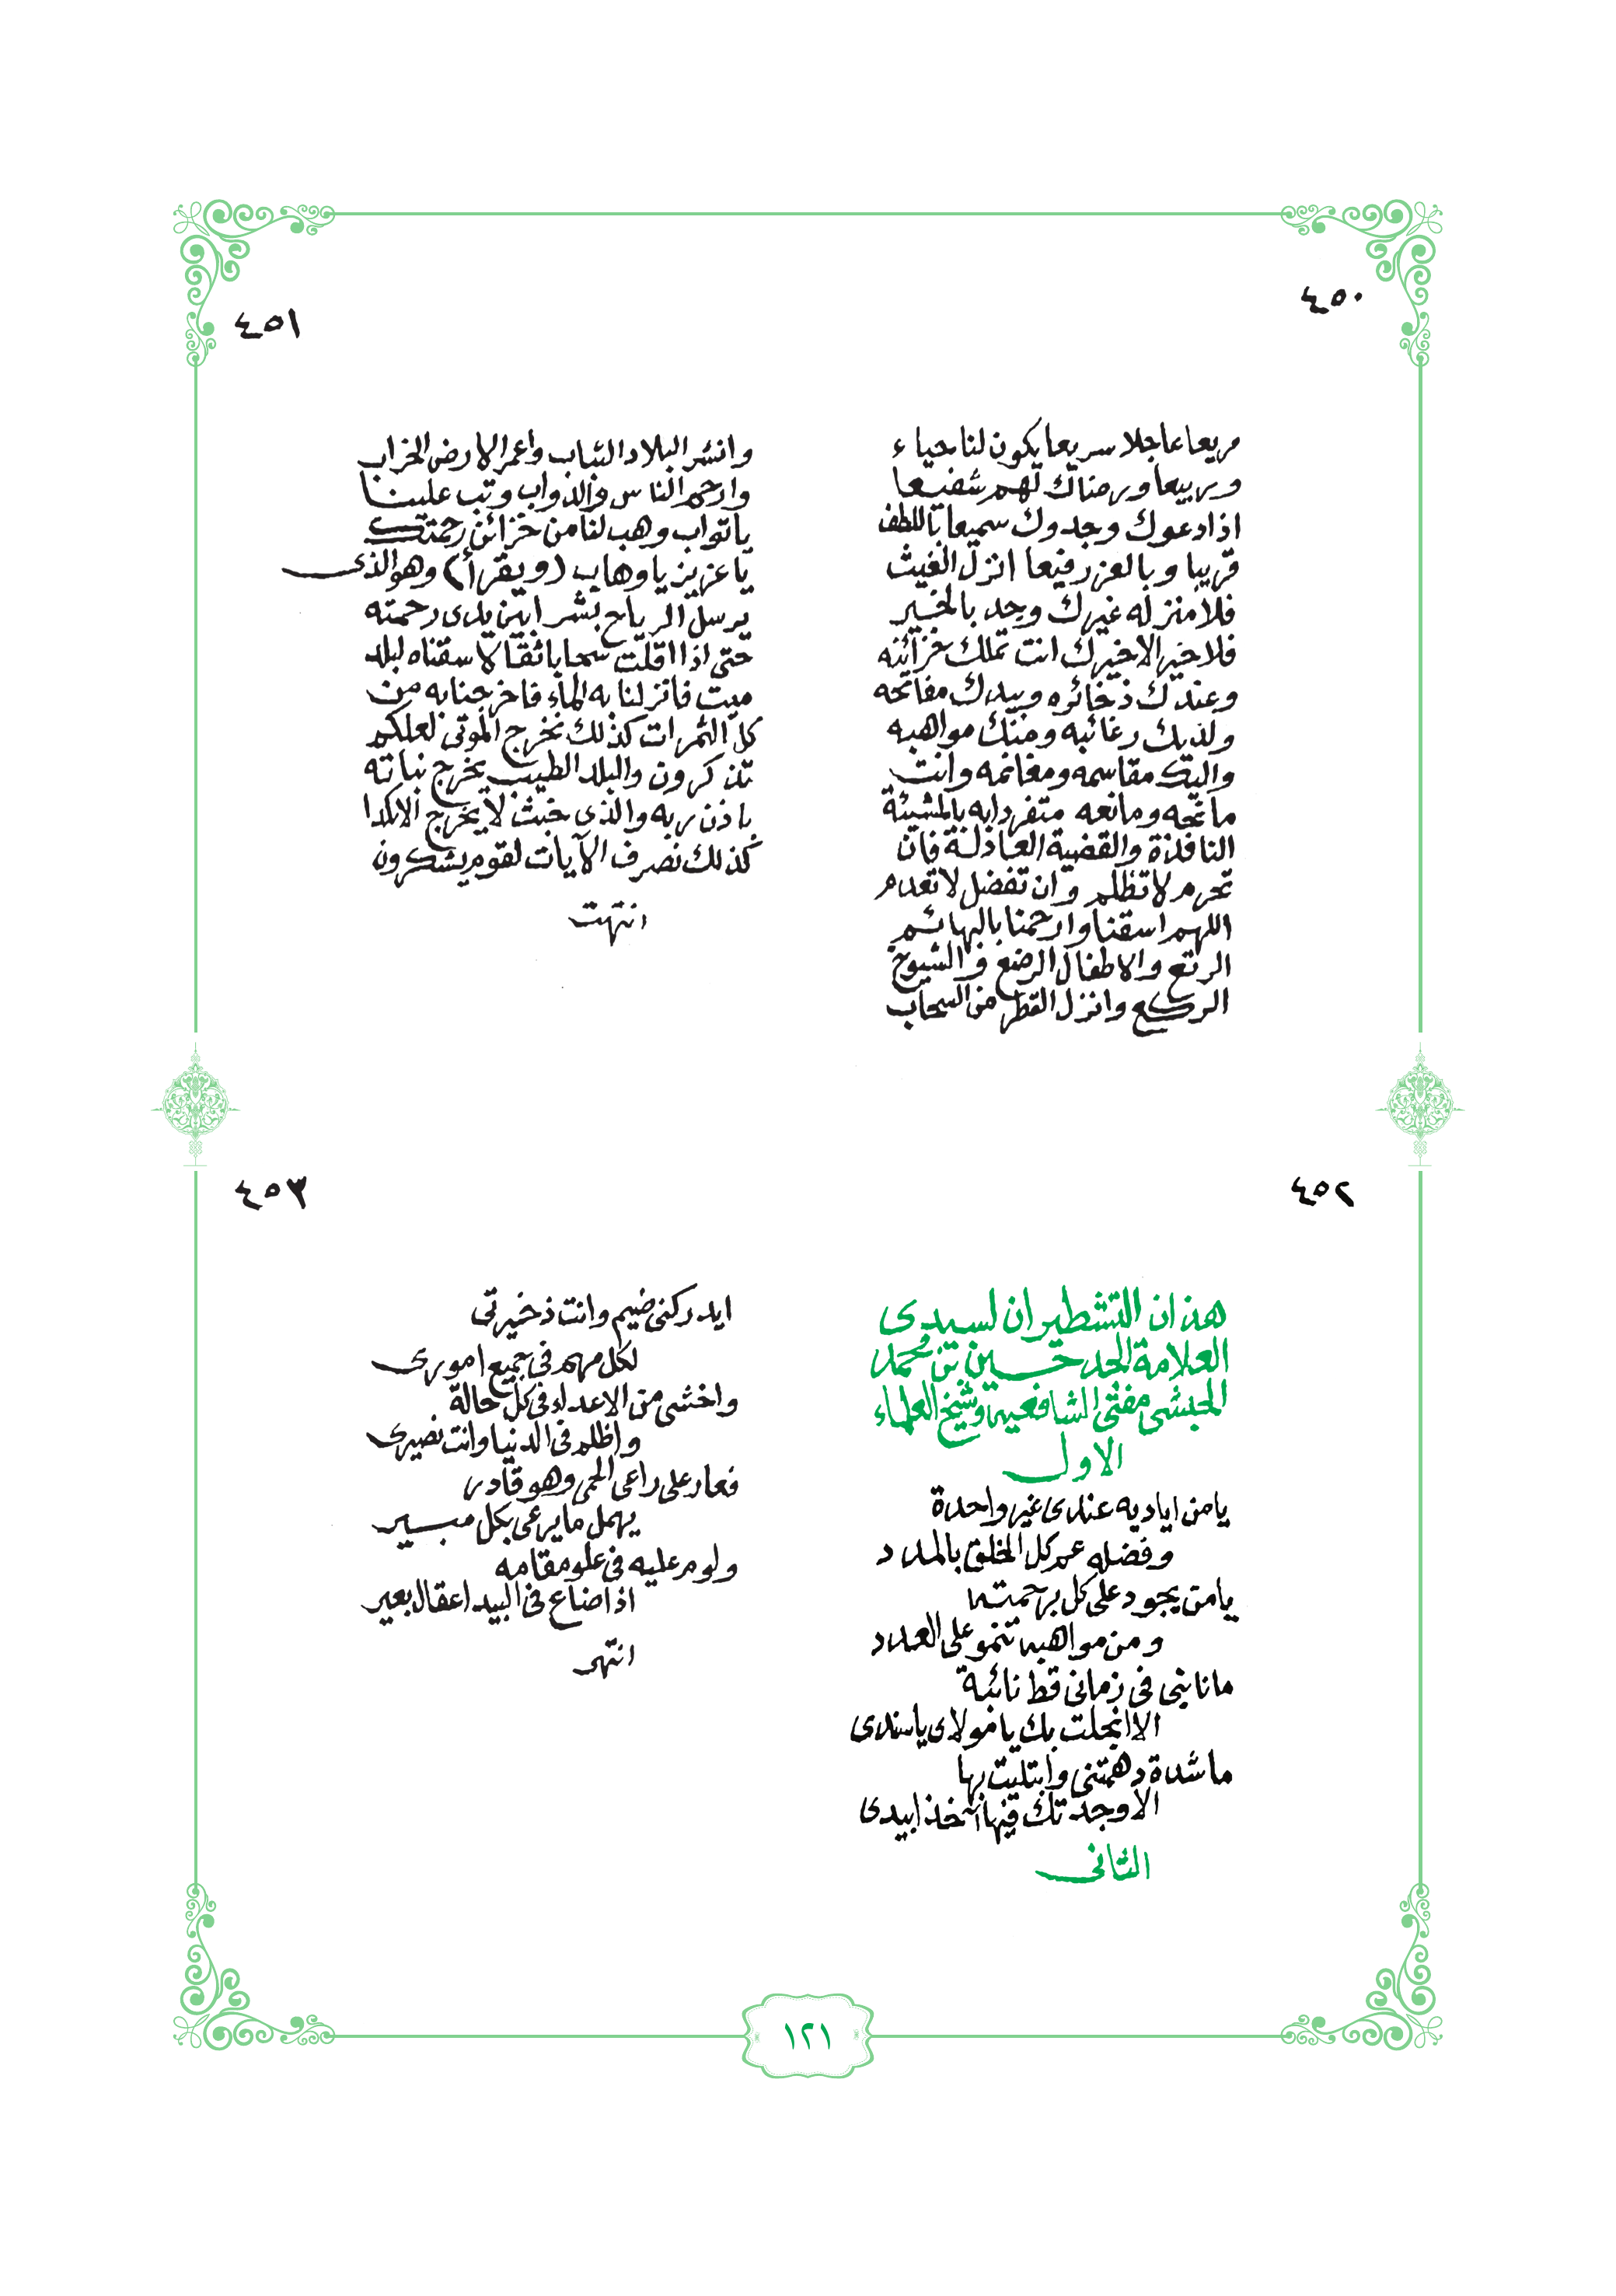 ٤٥٠
مريعا عاجلا سريعا يكون لنا حياء
وربيعا ورضاك لهم شفيعا
اذا دعوك وجدوك سميعا باللطف
قريبا وبالعز رفيعا انزل الغيث
فلا منزله غيرك وجد بالخير
فلا خير الا خيرك انت تملك خزائنه
وعندك ذخائره وبيدك مفاتحه
ولديك رغائبه ومنك مواهبه
واليك مقاسمه ومغانمه وانت
ماتحه ومانعه متفردا به بالمشيئة
النافذة والقضية العادلة فان
تحرم لا تظلم وان تفضل لا تعدم
اللهم اسقنا وارحمنا بالبهائم
الرتع والاطفال الرضع والشيوخ
الركع وانزل القطر من السحاب
٤٥١
وانشر البلاد اليباب واعمر الارض الخراب
وارحم الناس والدواب وتب علينا
يا تواب وهب لنا من خزائن رحمتك
يا عزيز يا وهاب (ويقرأ) وهو الذى
يرسل الرياح بشرا بين يدى رحمته
حتى اذا اقلت سحابا ثقالا سقناه لبلد
ميت فانزلنا به الماء فاخرجنا به من
كل الثمرات كذلك نخرج الموتى لعلكم
تذكرون والبلد الطيب يخرج نباته
باذن ربه والذى خبث لا يخرج الا نكدا
كذلك نصرف الآيات لقوم يشكرون
انتهت
٤٥٢
هذان التشطيران لسيدى
العلامة الجد حسين بن محمد
الحبشى مفتى الشافعية وشيخ العلماء
الاول
يا من اياديه عندى غير واحدة
وفضله عم كل الخلق بالمدد
يا من يجود على كل برحمته
ومن مواهبه تنمو على العدد
ما نابنى فى زمانى قط نائبة
الا انجلت بك يا مولاى يا سندى
ما شدة دهمتنى وابتليت بها
الا وجدتك فيها آخذا بيدى
الثانى
٤٥٣
ايدركنى ضيم وانت ذخيرتى
لكل مهم فى جميع امورى
واخشى من الاعداء فى كل حالة
واظلم فى الدنيا وانت نصيرى
فعار على راعى الحمى وهو قادر
يهمل ما يرعى بكل مسير
ولوم عليه فى علو مقامه
اذا ضاع فى البيدا عقال بعير
انتهى
١٢١